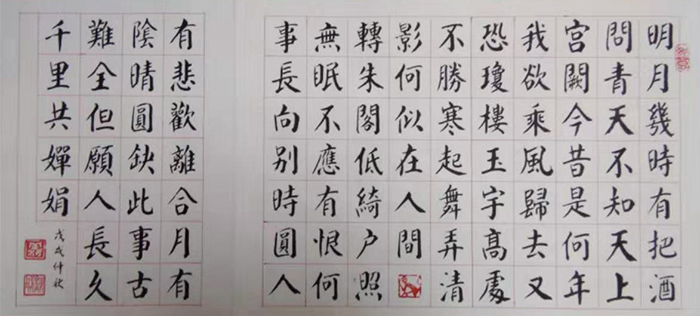 明月幾時有把酒
問青天不知天上
宮闕今昔是何年
我欲乘風歸去又
恐瓊樓玉宇高處
不勝寒起舞弄清
影何似在人間
轉朱閣低綺户照
無眠不應有恨何
事長向别時圓人
有悲歡離合月有
陰晴圓缺此事古
難全但願人長久
千里共嬋娟
戊戌仲秋